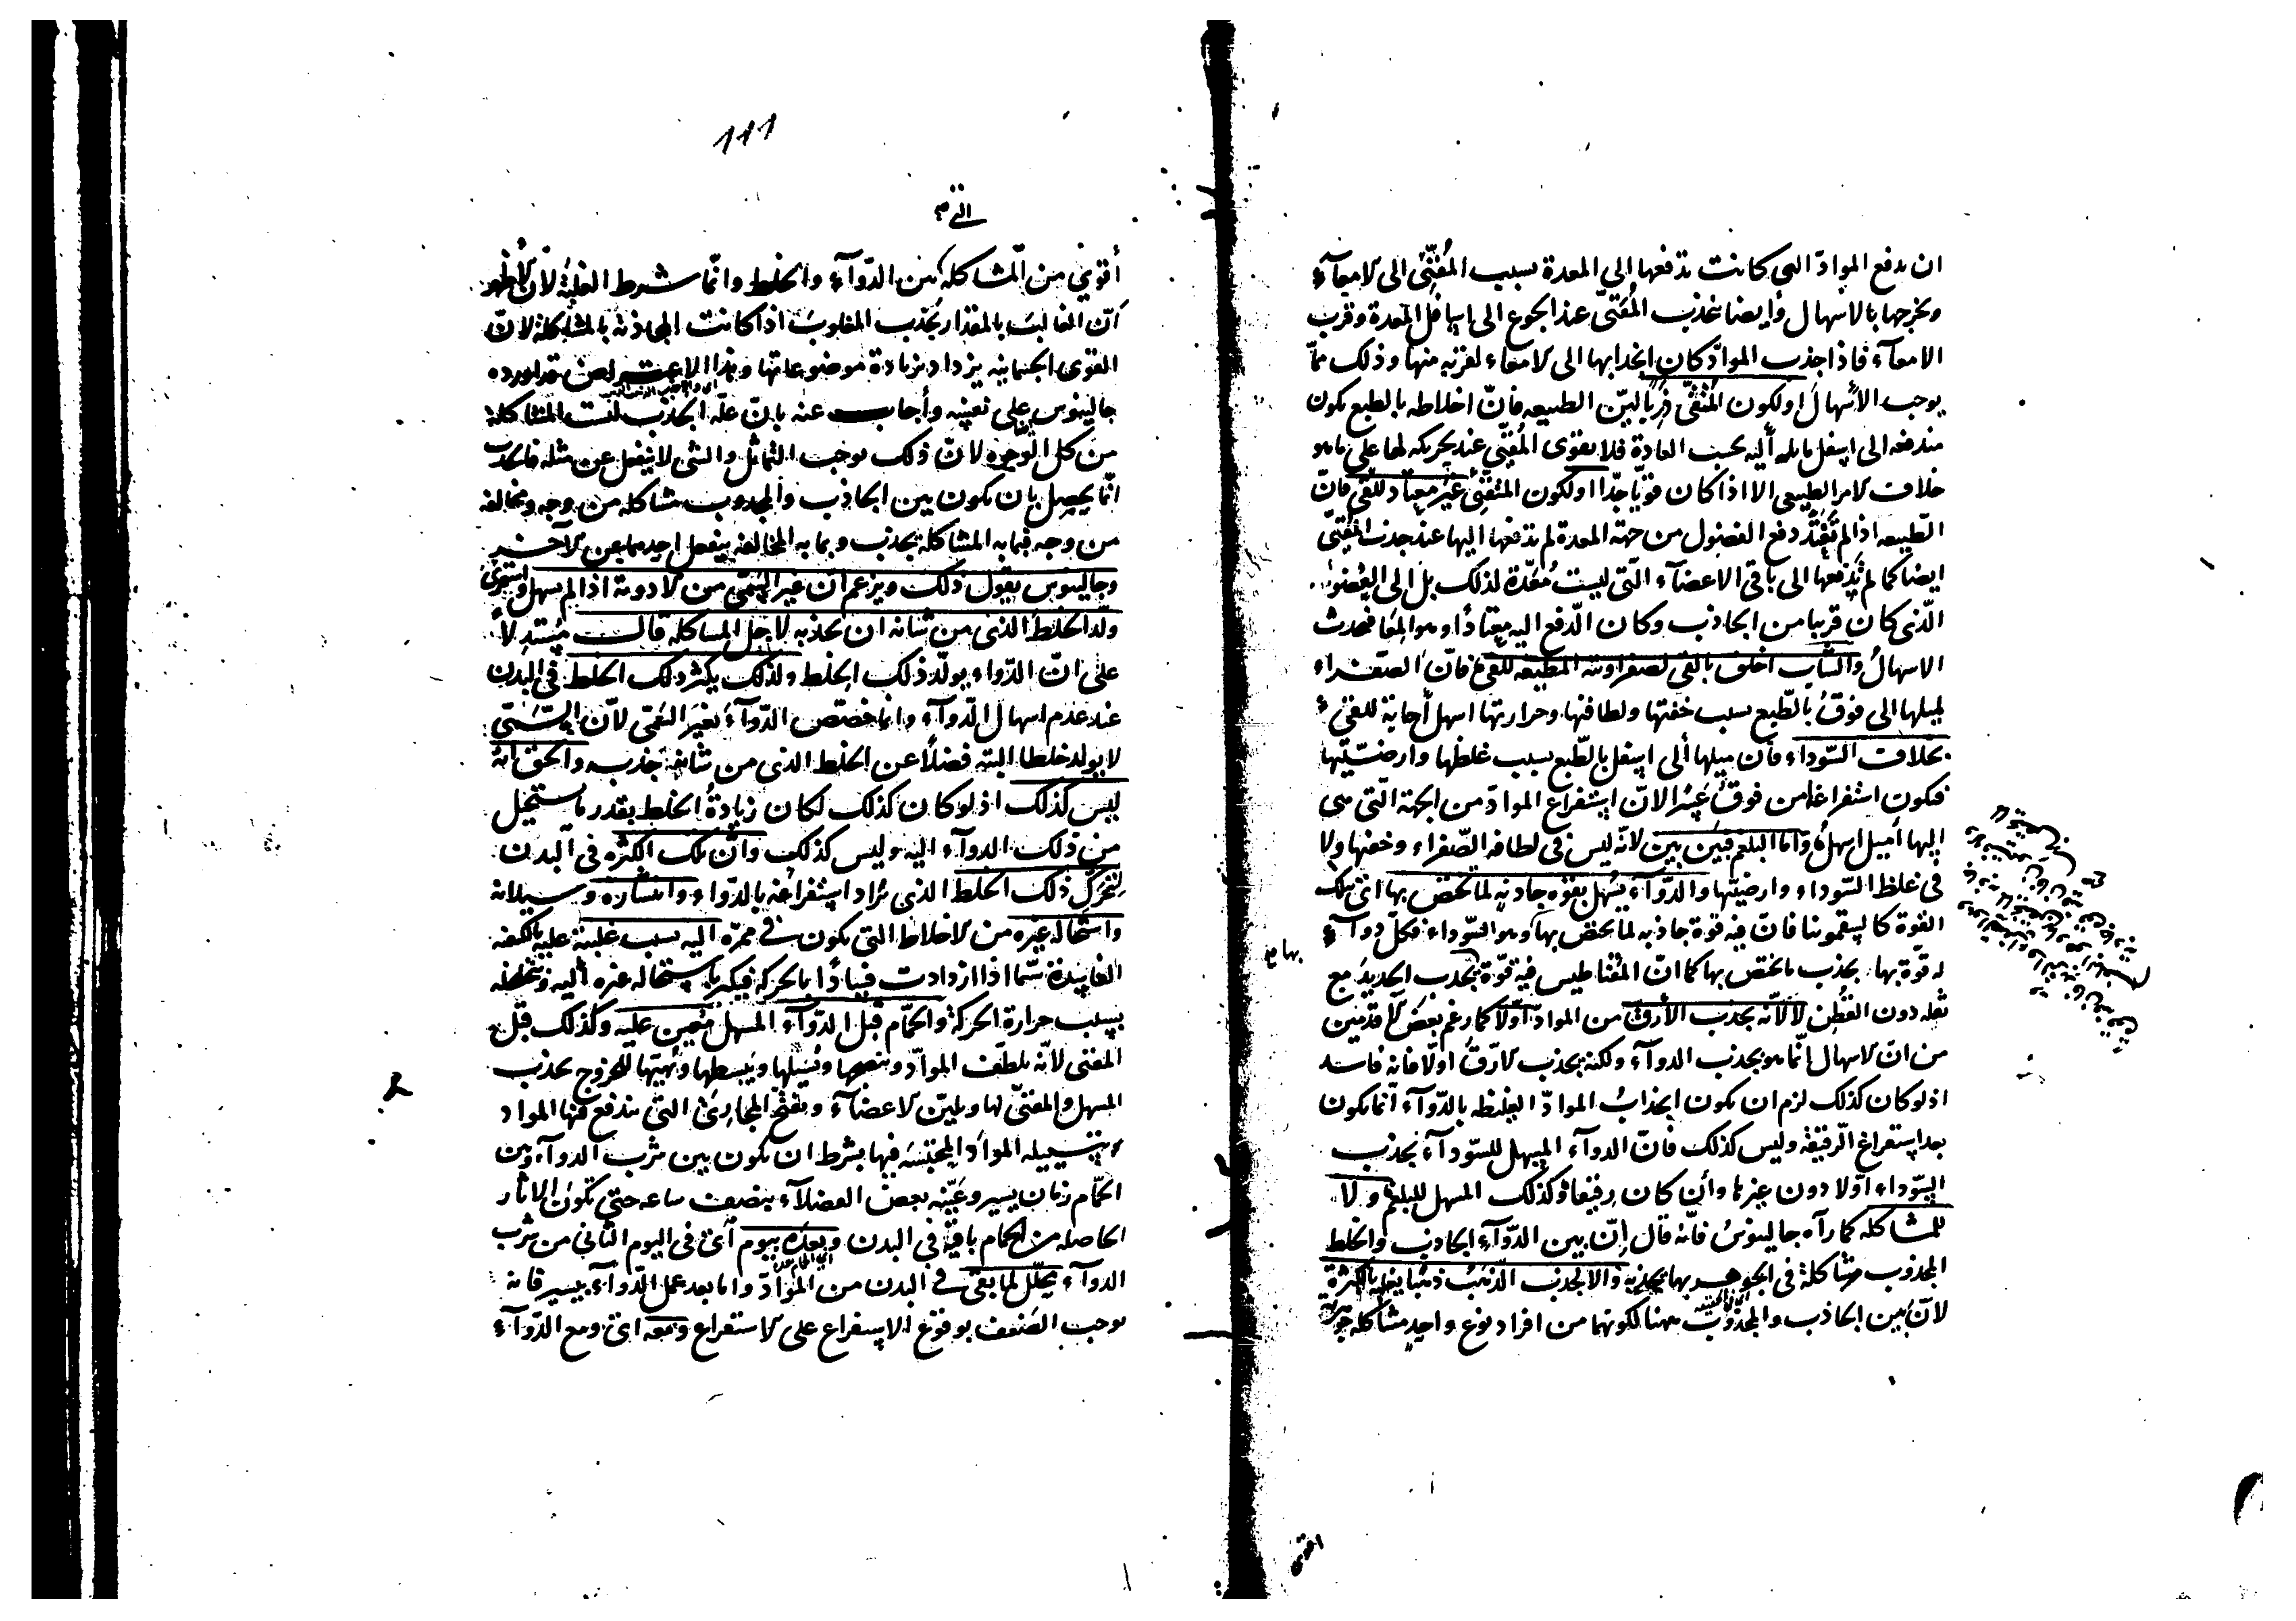 ان يدفع الموادّ التى كانت تدفعها الى المعدة بسبب المُقَيّئ الى الامعآء
ويخرجها بالاسهال وأيضا ينجذب المُقَيّئ عند الجوع الى اسافل المعدة وقرب
الامعآء فاذا جذب الموادّ كان انجذابها الى الامعاء لقربه منها وذلك ممّا
يوجب الأسهالَ او لكون المُتَقَيّئ ذَرِبًا ليّن الطبيعه فانّ اخلاطه بالطبع يكون
مندفعه الى اسفل مايله أليه بحسب العادة فلا يقوى المُقيّئ عند تحريكه لها على ماهو
خلاف الامر الطبيعى الا اذا كان قويّا جدّا او لكون المتقيّئ غير معتاد للقئ فانّ
الطّبيعه اذا لم تَعْتَدْ دفع الفضول من جهة المعدة لم تدفعها اليها عند جذب المُقيّئ
ايضا كما لم يدفعها الى باقى الاعضآء الّتى ليست مُعَدّة لذلك بل الى العُضو
الّذى كان قريبا من الجاذب وكان الدّفع اليه معتادًا وهو المِعَا فيحدث
الاسهالُ والشّاب اخلق بالقى لصفراويته المطيعه للقئ فانّ الصّفراء
لميلها الى فوقُ بالطّبع بسبب خفتها ولطافتها وحرارتها اسهل أجابة للقئ
بخلاف السّوداء فان ميلها ألى اسفل بالطّبع بسبب غلظها وارضيّتها
فيكون استفراغها من فوقُ عَسِرًا لانّ استفراغ الموادّ من الجهة الّتى هى
اليها أميل اسهلُ وأما البلغم فبَين بَين لانّه ليس فى لطافه الصّفراء وخفتها ولا
فى غلظ السّوداء وارضيتها والدّوآء يسهل بقوه جاذبه لما يختص بها اى بتلك
القوة كالسقمونيا فانّ فيه قوة جاذبه لما يختص بها وهو السّوداء فكلّ دوآء
بها صح
له قوّة بها يجذب ما يختص بها كما انّ المغناطيس فيه قوّة يجذب الحديدَ مع
ثقله دون القُطن لا لأنّه يجذب الأرقّ من الموادّ أوّلا كما زعم بعض الاقدمين
من انّ الاسهال انّما هو بجذب الدوآء ولكنه يجذب الارّقَّ اولا فانه فاسد
اذ لو كان كذلك لزم ان يكون انجذابُ الموادّ الغليظه بالدّوآء انّما يكون
بعد استفراغ الرّقيقه وليس كذلك فانّ الدوآء المسهل للسّودآء يجذب
السّوداء اوّلا دون غيرها وأن كان رقيقا وكذلك المسهل للبلغم ولا
للمشاكله كما رآه جالينوسُ فانّه قال إنّ بين الدّوآء الجاذب والخلط
المجذوب مشاكلة فى الجوهر بها يجذبه والا لجذب الذّهَبُ ذهبًا يغلبه بالكثرة
لانّ بين الجاذب والمجذوب هنا لكونهما من افراد نوع واحدٍ مشاكله جوهرية
اقوى
111
التى صح
أقوى من المشاكله بين الدّوآء والخلط وانّما شرط الغلبة لانّ الاظهر
انّ الغالبَ بالمقدار يجذب المغلوبَ اذا كانت المجاذبة بالمشاكلة لانّ
القوى الجسمانيه يزداد بزيادة موضوعاتها وهذا الاعتراض قد اورده
جالينوس على نفسه وأجاب عنه بانّ علّه الجذب ليست المشاكلة
من كل الوجوه لانّ ذلك يوجب التماثل والشى لا ينفعل عن مثله فالجذب
انّما يحصل بان يكون بين الجاذب والمجذوب مشاكله من وجه ومخالفه
من وجه فبما به المشاكلة يجذب وبما به المخالفه ينفعل احدهما عن الآخر
وجالينوس يقول ذلك ويزعم انّ غير السُمّى من الادوية اذا لم يسهل واستمرئ
ولّد الخلط الذى من شانه ان يجذبه لاجل المشاكله قالَ مُستدِلاًّ
على انّ الدّواء يولّد ذلك الخلط ولذلك يكثر ذلك الخلط فى البدن
عند عدم اسهال الدّوآء وانما خصّص الدّوآءَ بغير السُمّى لانّ السُّمّىّ
لا يولد خلطا البته فضلًا عن الخلط الذى من شانه جذبه والحق انه
ليس كذلك اذ لو كان كذلك لكان زيادةُ الخلط بقدر ما يستحيل
من ذلك الدوآء اليه وليس كذلك وانّ تلك الكثره فى البدن
لتحرّك ذلك الخلط الذى يُراد استفراغه بالدّواء وانتشاره وسيلانه
واستحاله غيره من الاخلاط التى يكون فى ممرّه اليه بسبب غلبته عليه بالكيفيه
الفاسدة سيّما اذا ازدادت فسادًا بالحركه فيكثر باستحاله غيره أليه
بسبب حرارة الحركة والحمّام قبل الدّوآء المسهل مُعِين عليه وكذلك قبل
المقئى لانّه يلطّف الموادّ وينضجها ويُسَيّلها ويبسطها ويهيّئها للخروج بجذب
المسهل والمقيّئ لها ويليّن الاعضآء ويفتح المجارى التى يندفع فيها المواد
وبتسييله الموادّ المحتبسه فيها بشرط ان يكون بين شرب الدوآء وبين
الحمّام زمان يسير وعيّنه بعض الفضلآء بنصف ساعه حتى تكون الاثار
الحاصله من الحمام باقية فى البدن وبعدَه بيوم أى فى اليوم الثّانى من شرب
الدوآء يحلّل لما بقى فى البدن من الموادّ واما بعد عمل الدّوآء بيسير فانه
يوجب الضعف بوقوع الاستفراغ على الاستفراغ ومعه اى ومع الدّوآء